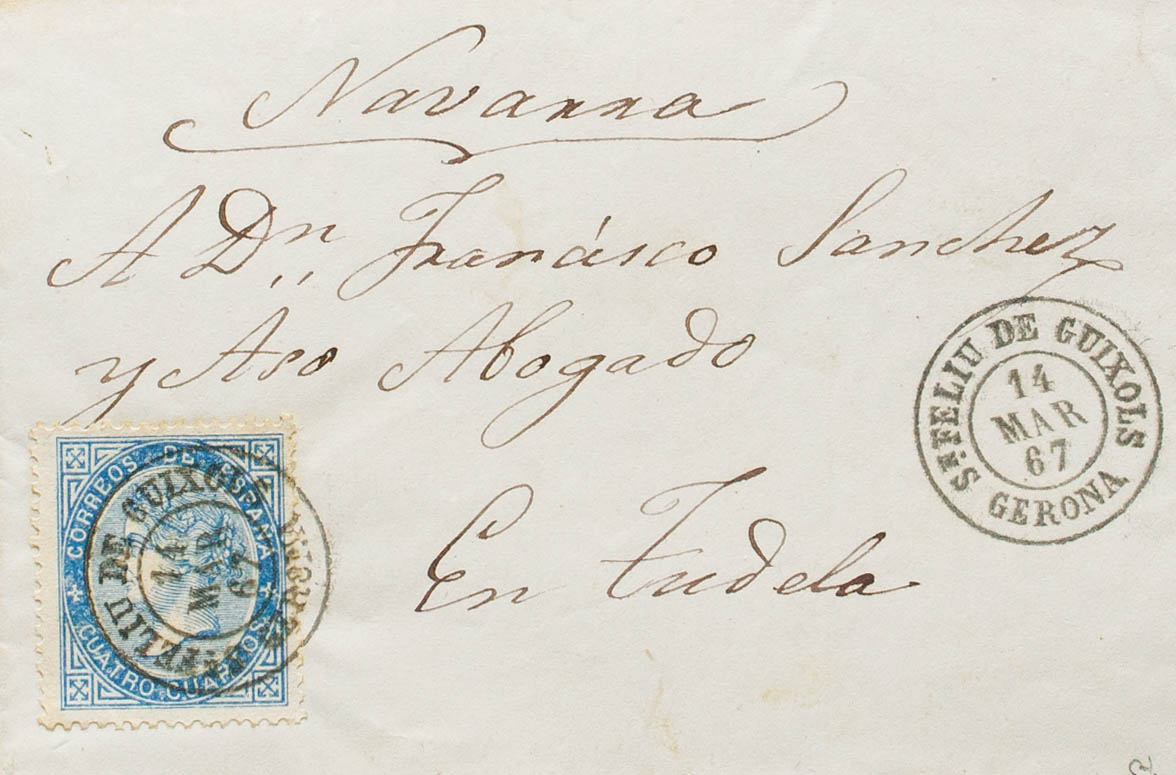 Navarra
A Dn,, Francisco Sanchez
y Aso Abogado
En Tudela
Sn. FELIU DE GUIXOLS
14
MAR
67
GERONA
CORREOS DE ESPAÑA
CUATRO CUARTOS
Sn. FELIU DE GUIXOLS
14
MAR
67
GERONA